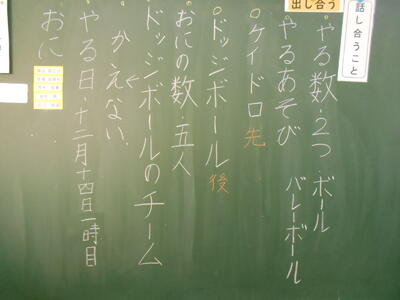 話し合うこと
出し合う
・やる数・2つ ボール
・やるあそび バレーボール
○ケイドロ先
○ドッジボール後
おにの数・五人
ドッジボールのチーム
←かえない
やる日・十二月十四日一時目
おに